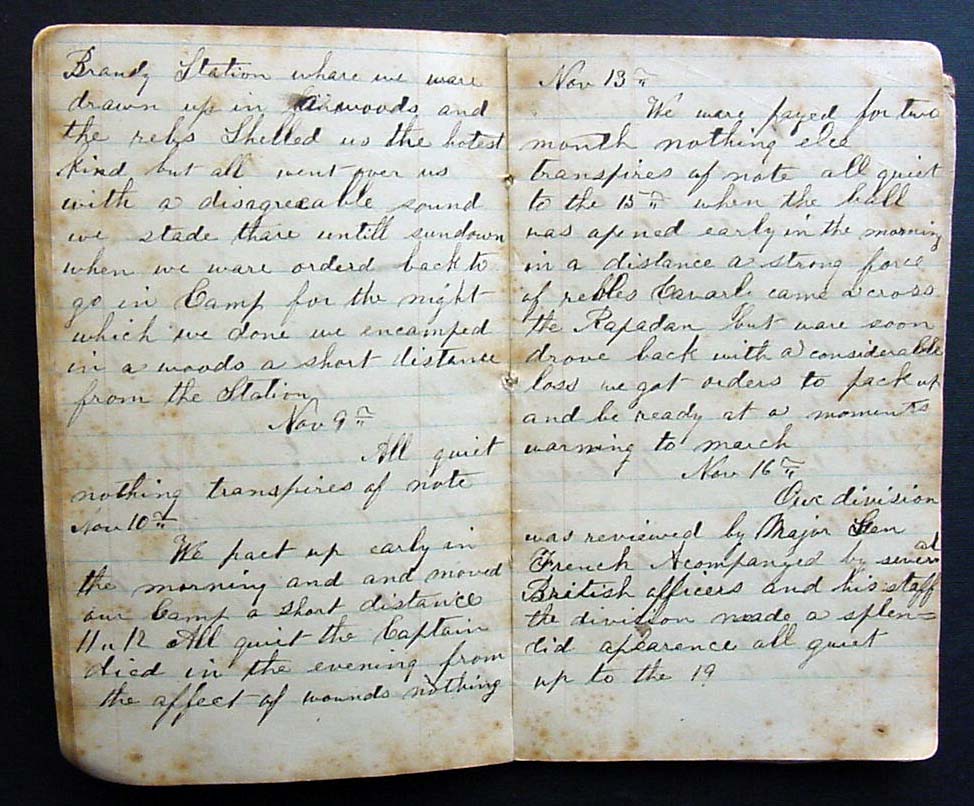 Brandy Station whare we ware
drawn up in woods and
the rebs Shelled us the hotest
kind but all went over us
with a disagreeable sound
we stade thare untill sundown
when we ware orderd back to
go in Camp for the night
which we done we encamped
in a woods a short distance
from the Station
Nov 9th
All quiet
nothing transpires of note
Nov 10th
We pact up early in
the morning and and moved
our Camp a short distance
11 " 12 All quiet the Captain
died in the evening from
the affect of wounds nothing
Nov 13th
We ware payed for two
month nothing elce
transpires of note all quiet
to the 15th when the ball
was apened early in the morning
in a distance a strong force
of rebles Cavarl came across
the Rapadan but ware soon
drove back with a considerable
loss we got orders to pack up
and be ready at a moments
warning to march
Nov 16th
Our division
was reviewed by Major Gen
French Acompanyed by several
British officers and his staff
the division made a splen=
did apearence all quiet
up to the 19